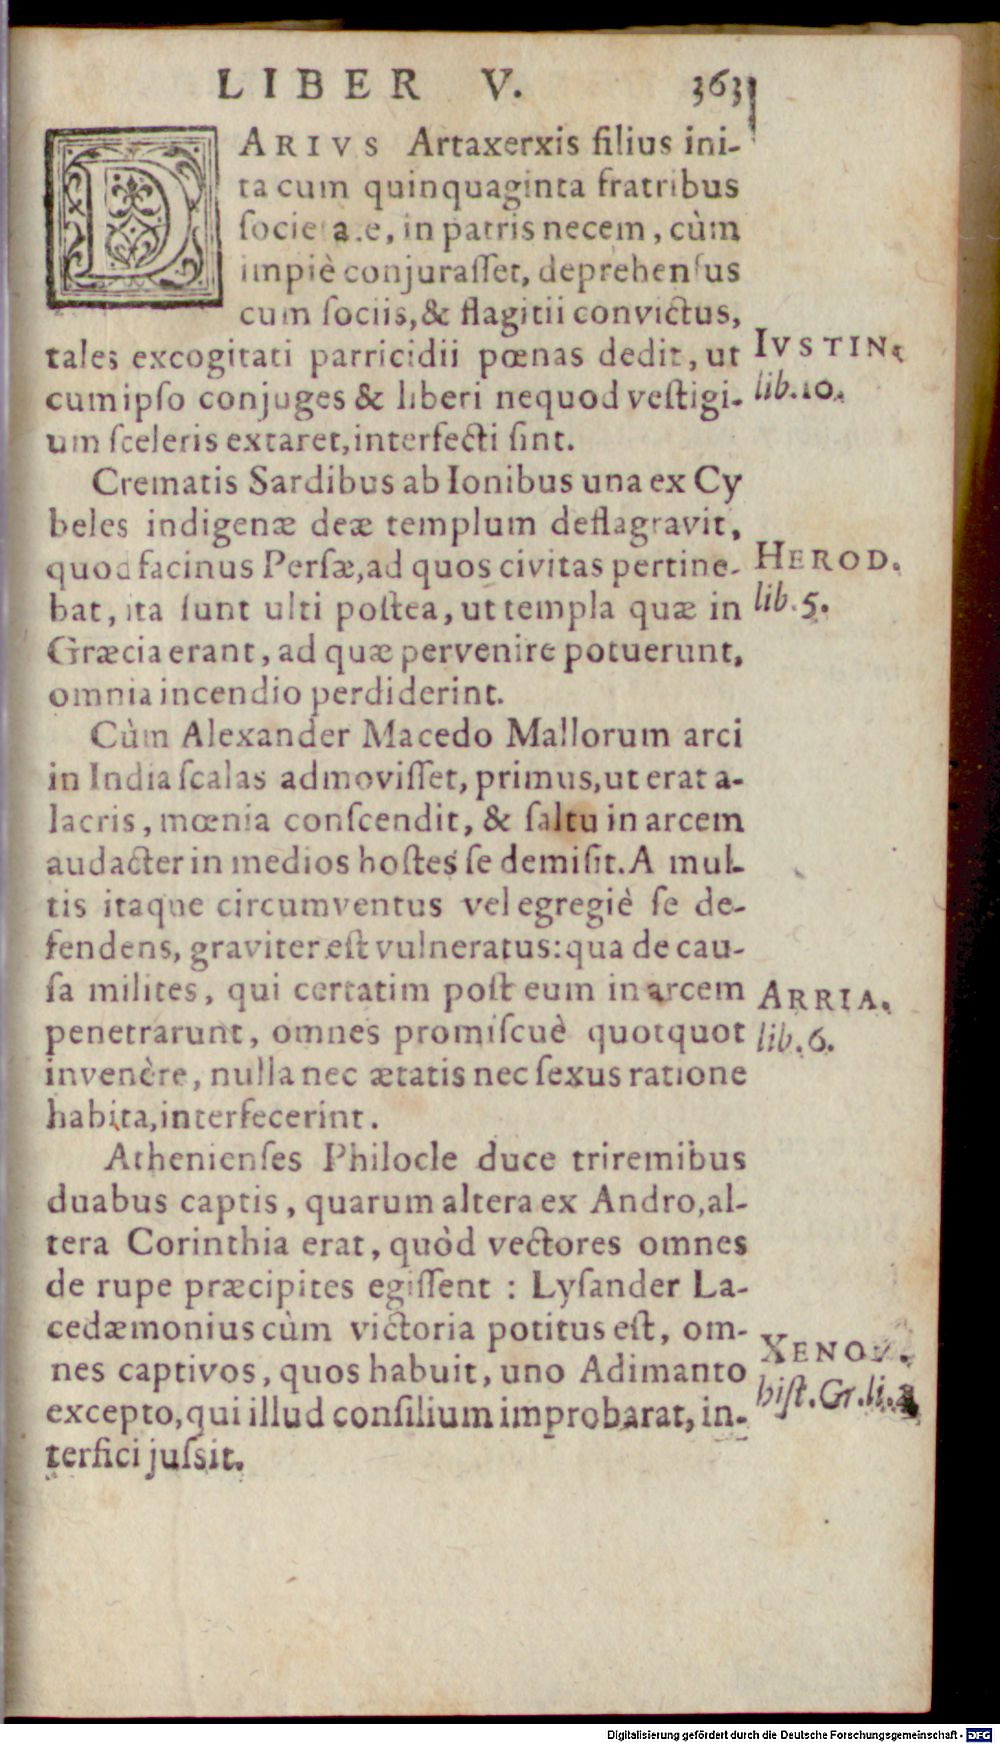 LIBER V. 363
DARIVS Artaxerxis filius ini-
ta cum quinquaginta fratribus
ſocieta.e, in patris necem, cùm
impiè conjuraſſet, deprehenſus
cum ſociis, & flagitii convictus,
tales excogitati parricidii pœnas dedit, ut
cum ipſo conjuges & liberi nequod veſtigi-
um ſceleris extaret, interfecti ſint.
IVSTIN.
lib. 10.
Crematis Sardibus ab Ionibus una ex Cy
beles indigenæ deæ templum deflagravit,
quod facinus Perſæ, ad quos civitas pertine-
bat, ita ſunt ulti poſtea, ut templa quæ in
Græcia erant, ad quæ pervenire potuerunt,
omnia incendio perdiderint.
HEROD.
lib. 5.
Cùm Alexander Macedo Mallorum arci
in India ſcalas admoviſſet, primus, ut erat a-
lacris, mœnia conſcendit, & ſaltu in arcem
audacter in medios hoſtes ſe demiſit. A mul-
tis itaque circumventus vel egregiè ſe de-
fendens, graviter eſt vulneratus: qua de cau-
ſa milites, qui certatim poſt eum in arcem
penetrarunt, omnes promiſcuè quotquot
invenère, nulla nec ætatis nec ſexus ratione
habita, interfecerint.
ARRIA.
lib. 6.
Athenienſes Philocle duce triremibus
duabus captis, quarum altera ex Andro, al-
tera Corinthia erat, quòd vectores omnes
de rupe præcipites egiſſent : Lyſander La-
cedæmonius cùm victoria potitus eſt, om-
nes captivos, quos habuit, uno Adimanto
excepto, qui illud conſilium improbarat, in-
terfici juſsit.
XENO
hiſt. Gr. li. 2
Digitalisierung gefördert durch die Deutsche Forschungsgemeinschaft - DFG